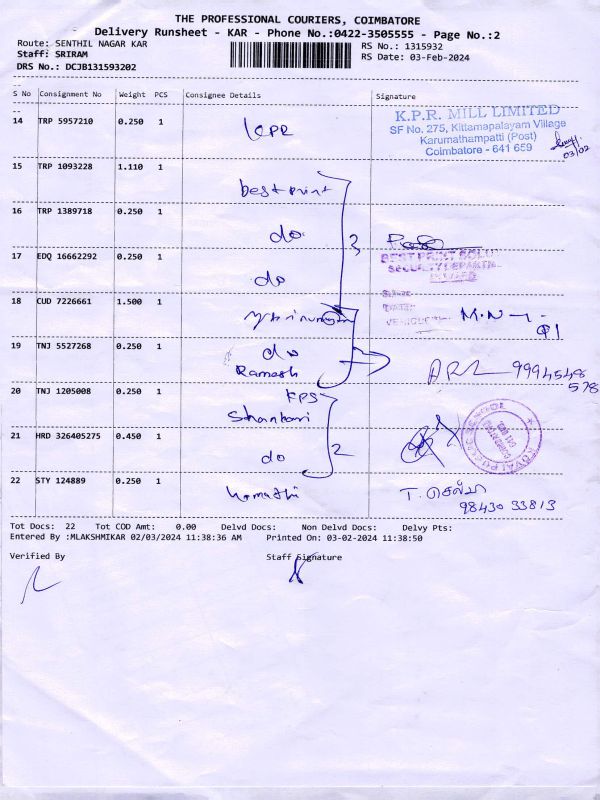 THE PROFESSIONAL COURIERS, COIMBATORE
Delivery Runsheet - KAR - Phone No.:0422-3505555 - Page No.:2
Route: SENTHIL NAGAR KAR
RS No.: 1315932
Staff: SRIRAM
RS Date: 03-Feb-2024
DRS No.: DCJB131593202
S No Consignment No Weight PCS Consignee Details Signature
14 TRP 5957210 0.250 1 KPR
K.P.R. MILL LIMITED
SF No. 275, Kittamapalayam Village
Karumathampatti (Post)
Coimbatore - 641 659
03/02
15 TRP 1093228 1.110 1 best print
16 TRP 1389718 0.250 1 do
3
17 EDQ 16662292 0.250 1 do
BEST PRINT
SECURITY
18 CUD 7226661 1.500 1
M.N
19 TNJ 5527268 0.250 1 do
Ramesh
9994548
578
20 TNJ 1205008 0.250 1 KPS
Shankari
21 HRD 326405275 0.450 1 do
2
22 STY 124889 0.250 1 Komathi
T. செல்வி
98430 33813
Tot Docs: 22 Tot COD Amt: 0.00 Delvd Docs: Non Delvd Docs: Delvy Pts:
Entered By :MLAKSHMIKAR 02/03/2024 11:38:36 AM Printed On: 03-02-2024 11:38:50
Verified By Staff Signature